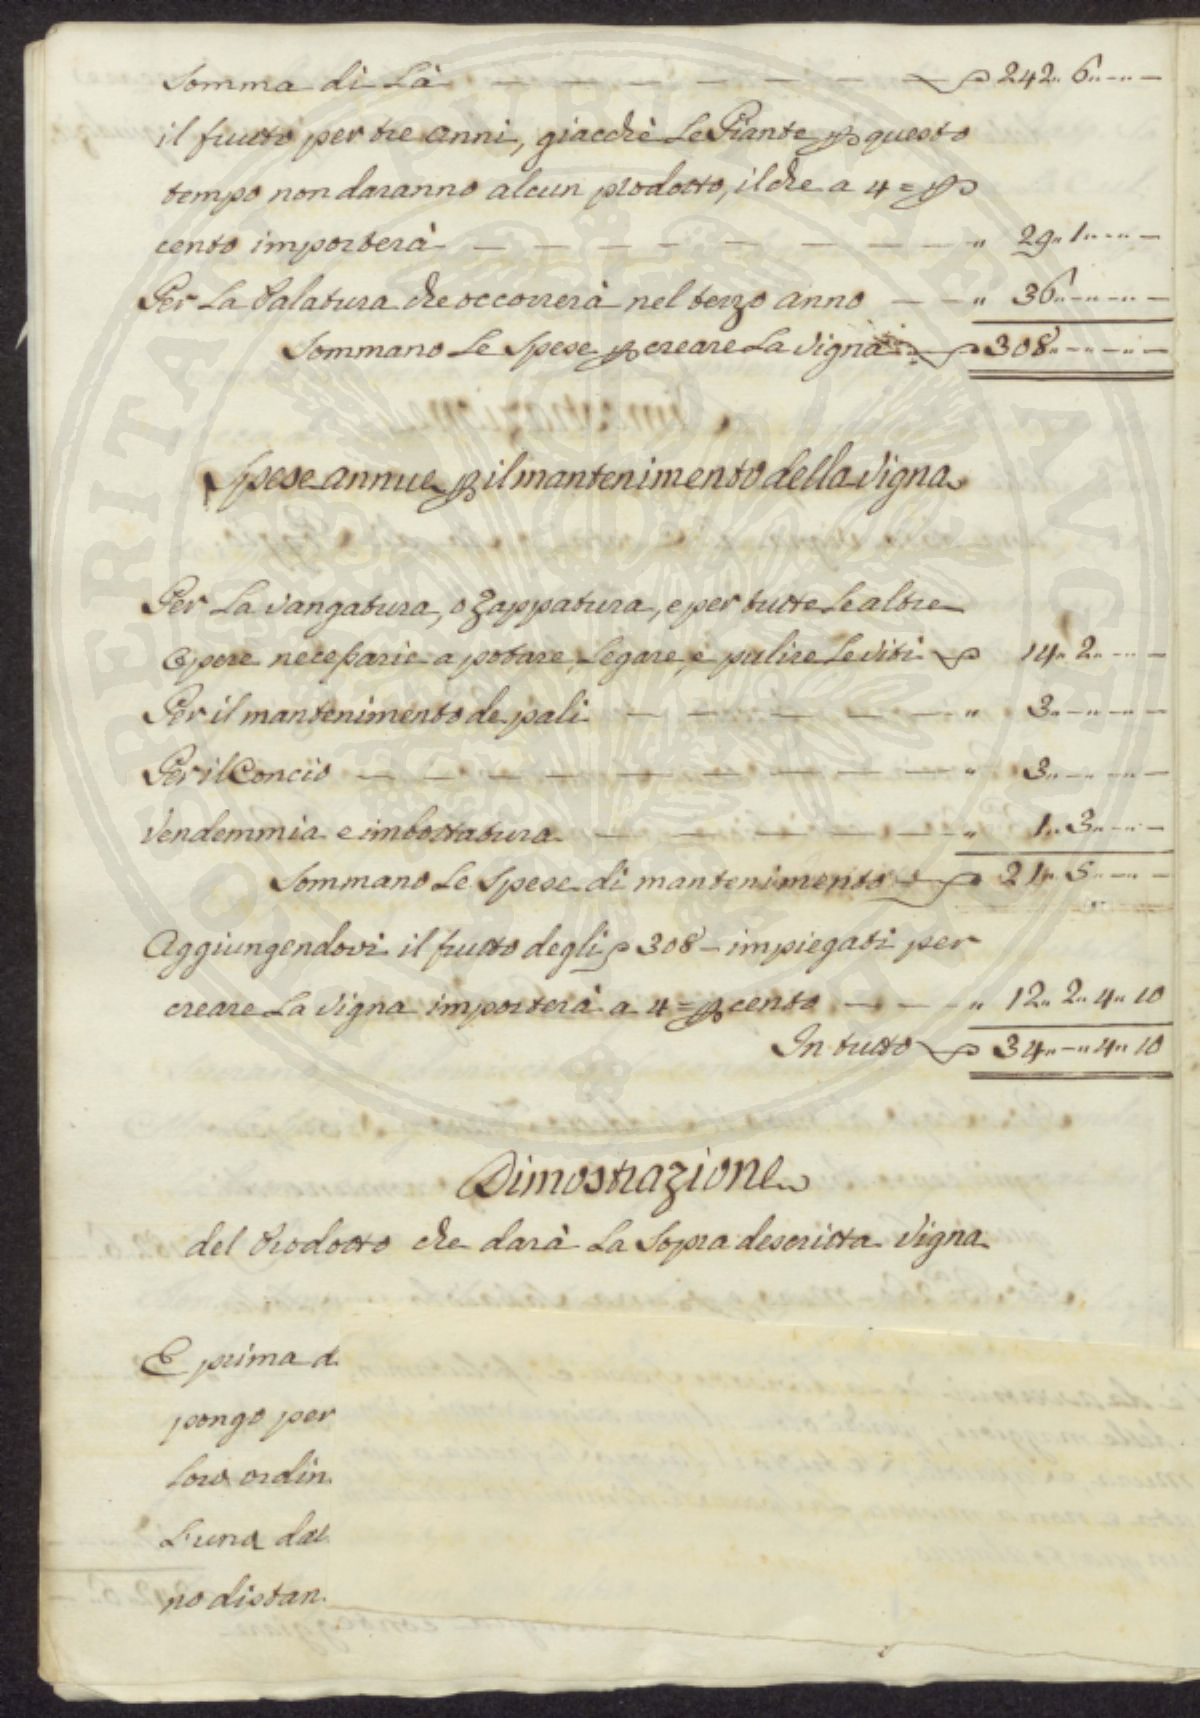 Somma di Là — — — — — — — ∽ 242„ 6„ -„ -
il frutto per tre anni, giacchè Le Piante p questo
tempo non daranno alcun prodotto, il che a 4 = p
cento importerà — — — — — — — „ 29„ 1„ -„ -
Per La Palatura che occorrerà nel terzo anno — — „ 36„ -„ -„ -
Sommano Le Spese p creare La Vigna ∽ 308„ -„ -„ -
Spese annue p il mantenimento della Vigna
Per La Vangatura, o Zappatura, e per tutte Le altre
Opere necessarie a potare, Legare, e pulire Le Viti ∽ 14„ 2„ -„ -
Per il mantenimento de pali — — — — — „ 3„ -„ -„ -
Per il Concio — — — — — — — — „ 3„ -„ -„ -
Vendemmia e imbottatura — — — — — „ 1„ 3„ -„ -
Sommano Le Spese di mantenimento ∽ 21„ 5„ -„ -
Aggiungendovi il frutto degli ∽ 308 - impiegati per
creare La Vigna importerà a 4 = p cento — — — „ 12„ 2„ 4„ 10
In tutto ∽ 34„ -„ 4„ 10
Dimostrazione
del Prodotto che darà La Sopra descritta Vigna
E prima d
pongo per
Loro ordin
L'una dal
no distan
PROSPERITAS AVGEM